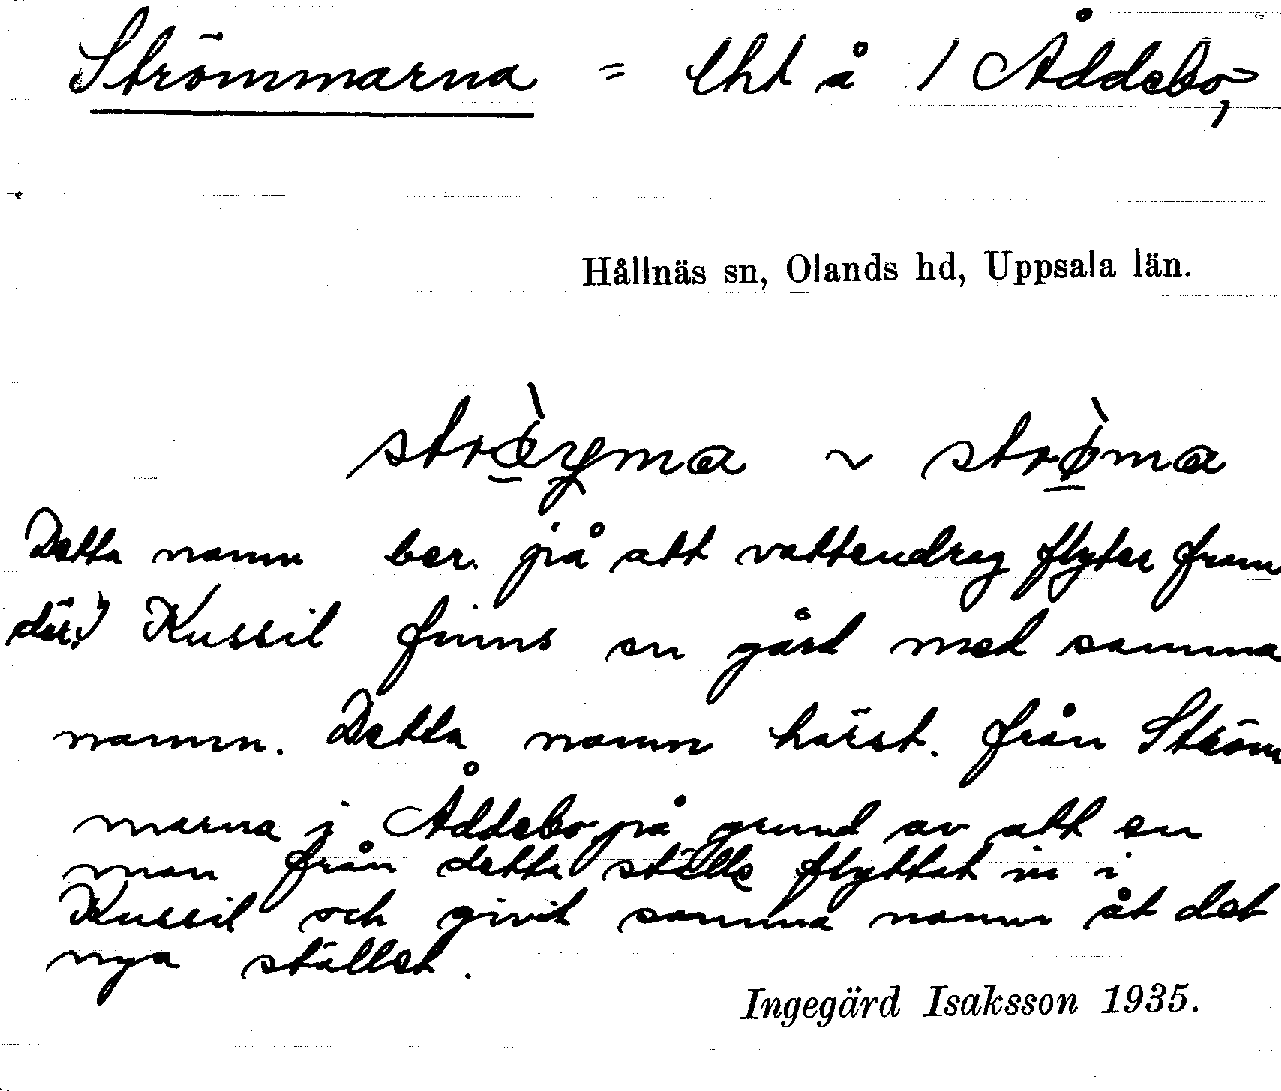 Strömmarna = lht å 1 Åddebo,
Hållnäs sn, Olands hd, Uppsala län.
strœ̀yma ~ strø̀ma
Detta namn ber. på att vattendrag flyter fram
där. I Kussil finns en gård med samma
namn. Detta namn härst. från Ström
marna i Åddebo på grund av att en
man från detta ställe flyttat in i
Kussil och givit samma namn åt det
nya stället.
Ingegärd Isaksson 1935.